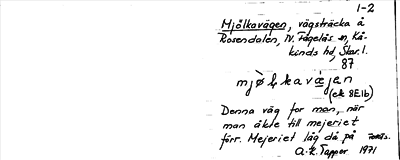 1-2
Mjölkavägen, vägsträcka å
Rosendalen, N. Fågelås sn, Kå-
kinds hd, Skar. l.
87
mjø̀lkavǽgen
(ek 8E1b)
Denna väg for man, när
man åkte till mejeriet
förr. Mejeriet låg då på
A. R. Tapper 1971